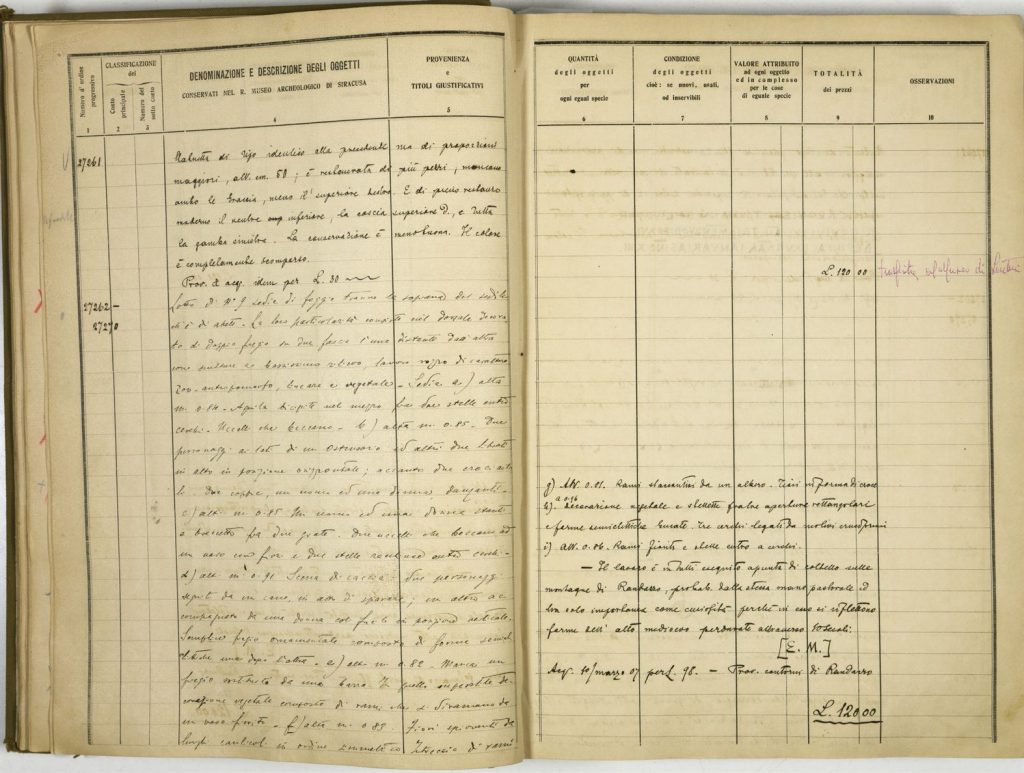 Numero d' ordine progressivo
CLASSIFICAZIONE del
Conto principale
Numero del sotto conto
DENOMINAZIONE E DESCRIZIONE DEGLI OGGETTI
CONSERVATI NEL R. MUSEO ARCHEOLOGICO DI SIRACUSA
PROVENIENZA
e
TITOLI GIUSTIFICATIVI
1 2 3 4 5
27261 Statuetta di tipo identico alla precedente ma di proporzioni
maggiori, alt. cm. 58; è restaurata da più pezzi, mancano
ambo le braccia, meno il superiore destro. È di pieno restauro
moderno il ventre inferiore, la coscia superiore d., e tutta
la gamba sinistra. La conservazione è meno buona. Il colore
è completamente scomparso.
Prov. e acq. idem per L. 30
27262 – Lotto di N° 9 sedie di faggio tranne la soprana del sedile
27270 ch'è di abete. La loro particolarità consiste nel dorsale decora-
to di doppio fregio su due fasce l'una distante dall'altra
con sculture a bassissimo rilievo, lavoro rozzo di carattere
zoo-antropomorfo, e vegetale. – Sedia a) alta
m. 0.84. Aquila bicipite nel mezzo fra due stelle entro
cerchi. Uccelli che beccano. – b) alta m. 0.85. Due
personaggi ai lati di un ostensorio ed altri due
in alto in posizione orizzontale; accanto due croci
Due coppie, un uomo ed una donna danzanti. –
c) alt. m. 0.85 Un uomo ed una donna
a braccetto fra due Due uccelli che beccano ad
un vaso con fior e due stelle entro cerchi. –
d) alt. m. 0.91 Scena di caccia: due personaggi
seguiti da un cane, in atto di sparare; un altro ac-
compagnato da una donna col fucile in posizione verticale.
Semplice fregio ornamentale composto di forme semiel-
littiche una dopo l'altra. – e) alt. m. 0.82. Manca un
fregio sostituito da una barra. In quello superstite de-
corazione vegetale composta di rami che si diramano da
un vaso – f) alta m. 0.83. Fiori
lunghi in ordine simmetrico Intreccio di rami
QUANTITÀ
degli oggetti
per
ogni egual specie
CONDIZIONE
degli oggetti
cioè: se nuovi, usati,
od inservibili
VALORE ATTRIBUITO
ad ogni oggetto
ed in complesso
per le cose
di eguale specie
TOTALITÀ
dei prezzi
OSSERVAZIONI
6 7 8 9 10
L. 120 00
g) Alt. 0.81. Rami da un albero. Fiori in forma di croce
h) a 0.96 Decorazione vegetale e stellette fra tre aperture rettangolari
e forme semiellittiche bucate. Tre cerchi legati da motivi cruciformi
i) Alt. 0.86. Rami fioriti e stelle entro a cerchi.
– Il lavoro è in tutti eseguito a punta di coltello nelle
montagne di Randazzo, probab. dalla stessa mano pastorale ed
ha solo importanza come curiosità perché in esso si riflettono
forme dell' alto medioevo perdurate attraverso 10 secoli.
[E. M.]
Acq. 10/marzo 07 per L. 98. – Prov. contorni di Randazzo
L. 120 00